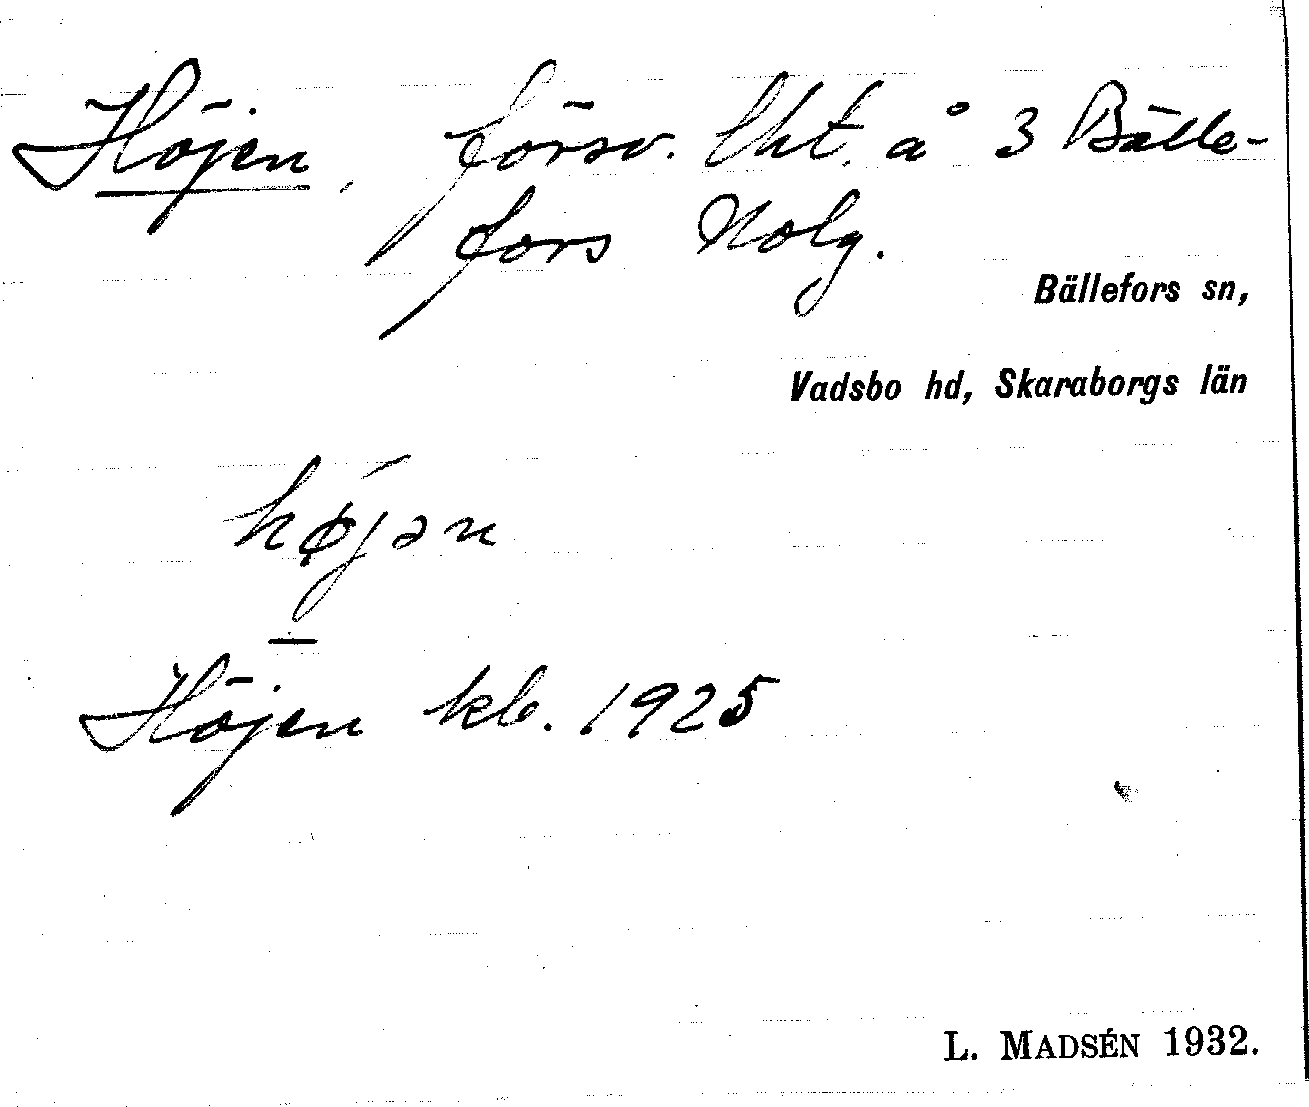 Höjen, försv. lht. å 3 Bälle-
fors Nolg.
Bällefors sn,
Vadsbo hd, Skaraborgs län
hø̀jən
Höjen kb. 1925
L. MADSÉN 1932.